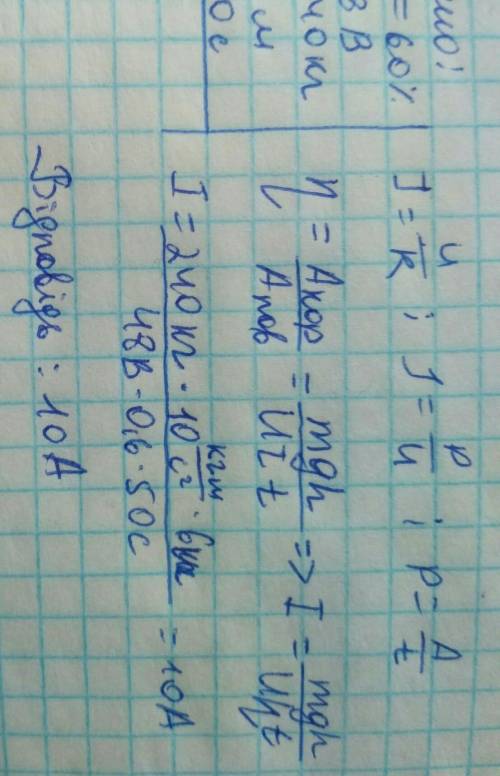 но:
= 60%
8 В
40 кг
м
0 с
I = U/R ; I = P/U ; P = A/t
η = Aкор/Aпов = mgh/UIt => I = mgh/Uηt
I = 240 кг · 10 кгм/с² · 6м / 48В · 0,6 · 50с = 10А
Відповідь : 10 А